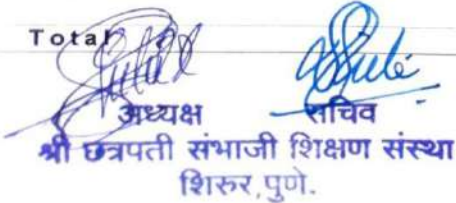 Total
अध्यक्ष सचिव
श्री छत्रपती संभाजी शिक्षण संस्था
शिरुर,पुणे.